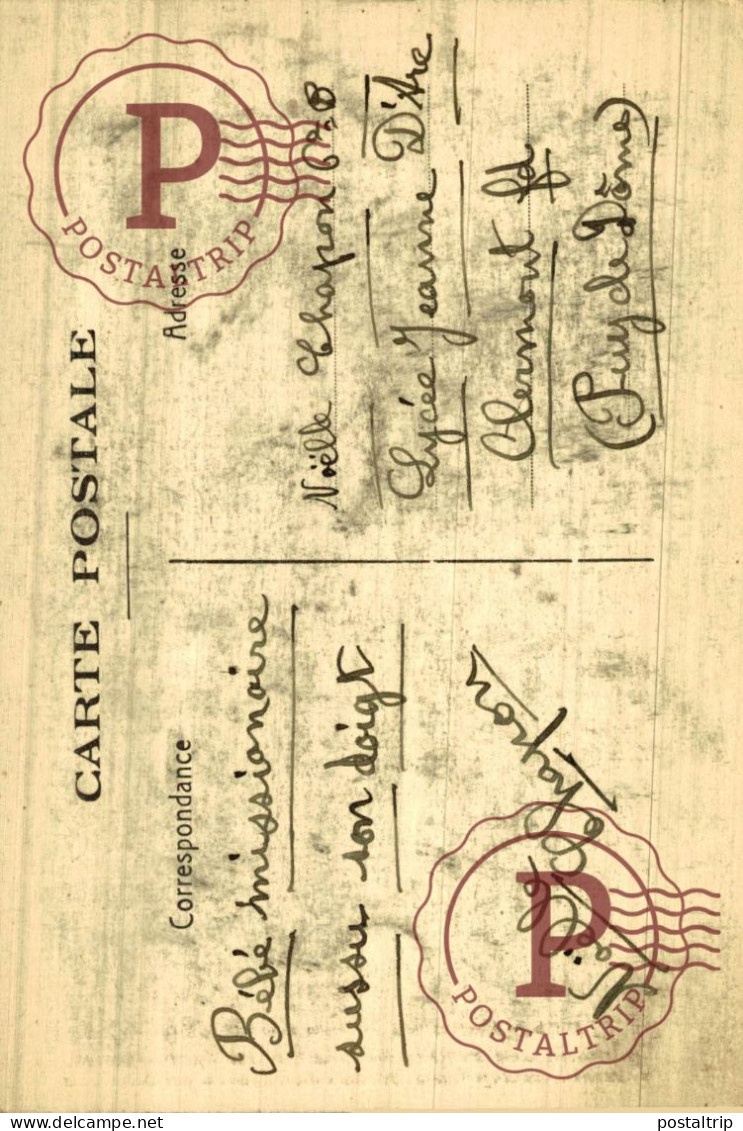 CARTE POSTALE
Correspondance
Bébé missionaire
sussu son doigt
Noëlle Chapon
Adresse
Noëlle Chapon 6e B
Lycée Jeanne D'Arc
Clermont fd
(Puy de Dôme)
P
POSTALTRIP
P
POSTALTRIP
delcampe.net
postaltrip